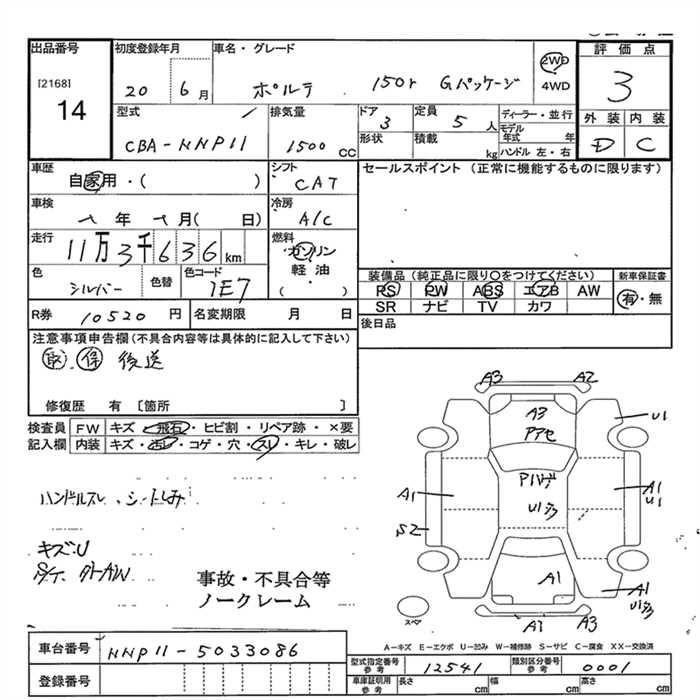 出品番号 初度登録年月 車名・グレード 2WD 評価点
[2168] 20 6月 ポルテ 150r Gパッケージ 4WD 3
14 型式 排気量 ドア 定員 ディーラー・並行 外装 内装
CBA-NNP11 1500CC 3 5人 モデル年式 年 D C
形状 積載 kg ハンドル 左・右
車歴 シフト セールスポイント (正常に機能するものに限ります)
自家用・( ) CAT
車検 年 月( 日) 冷房 A/C
走行 11万3千636km 燃料 ガソリン 軽油 ( )
色 シルバー 色替 色コード 1E7
装備品 (純正品に限り○をつけてください) 新車保証書
RS PW ABS エアB AW 有・無
SR ナビ TV カワ
R券 10520円 名変期限 月 日 後日品
注意事項申告欄 (不具合内容等は具体的に記入して下さい)
取 保 後送
修復歴 有 [箇所 ]
検査員 FW キズ・飛石・ヒビ割・リペア跡・×要
記入欄 内装 キズ・汚レ・コゲ・穴・スレ・キレ・破レ
ハンドルスレ、シートしみ
キズ:U
事故・不具合等
ノークレーム
A3 A2
A3
U1
A1
A1
U1
S2
A1
A1
スペア
A1 A3
A-キズ E-エクボ U-凹み W-補修跡 S-サビ C-腐食 XX-交換済
車台番号 NNP11-5033086
型式指定番号 参考 12541 類別区分番号 参考 0001
登録番号
車庫証明用 参考 長さ cm 幅 cm 高さ cm